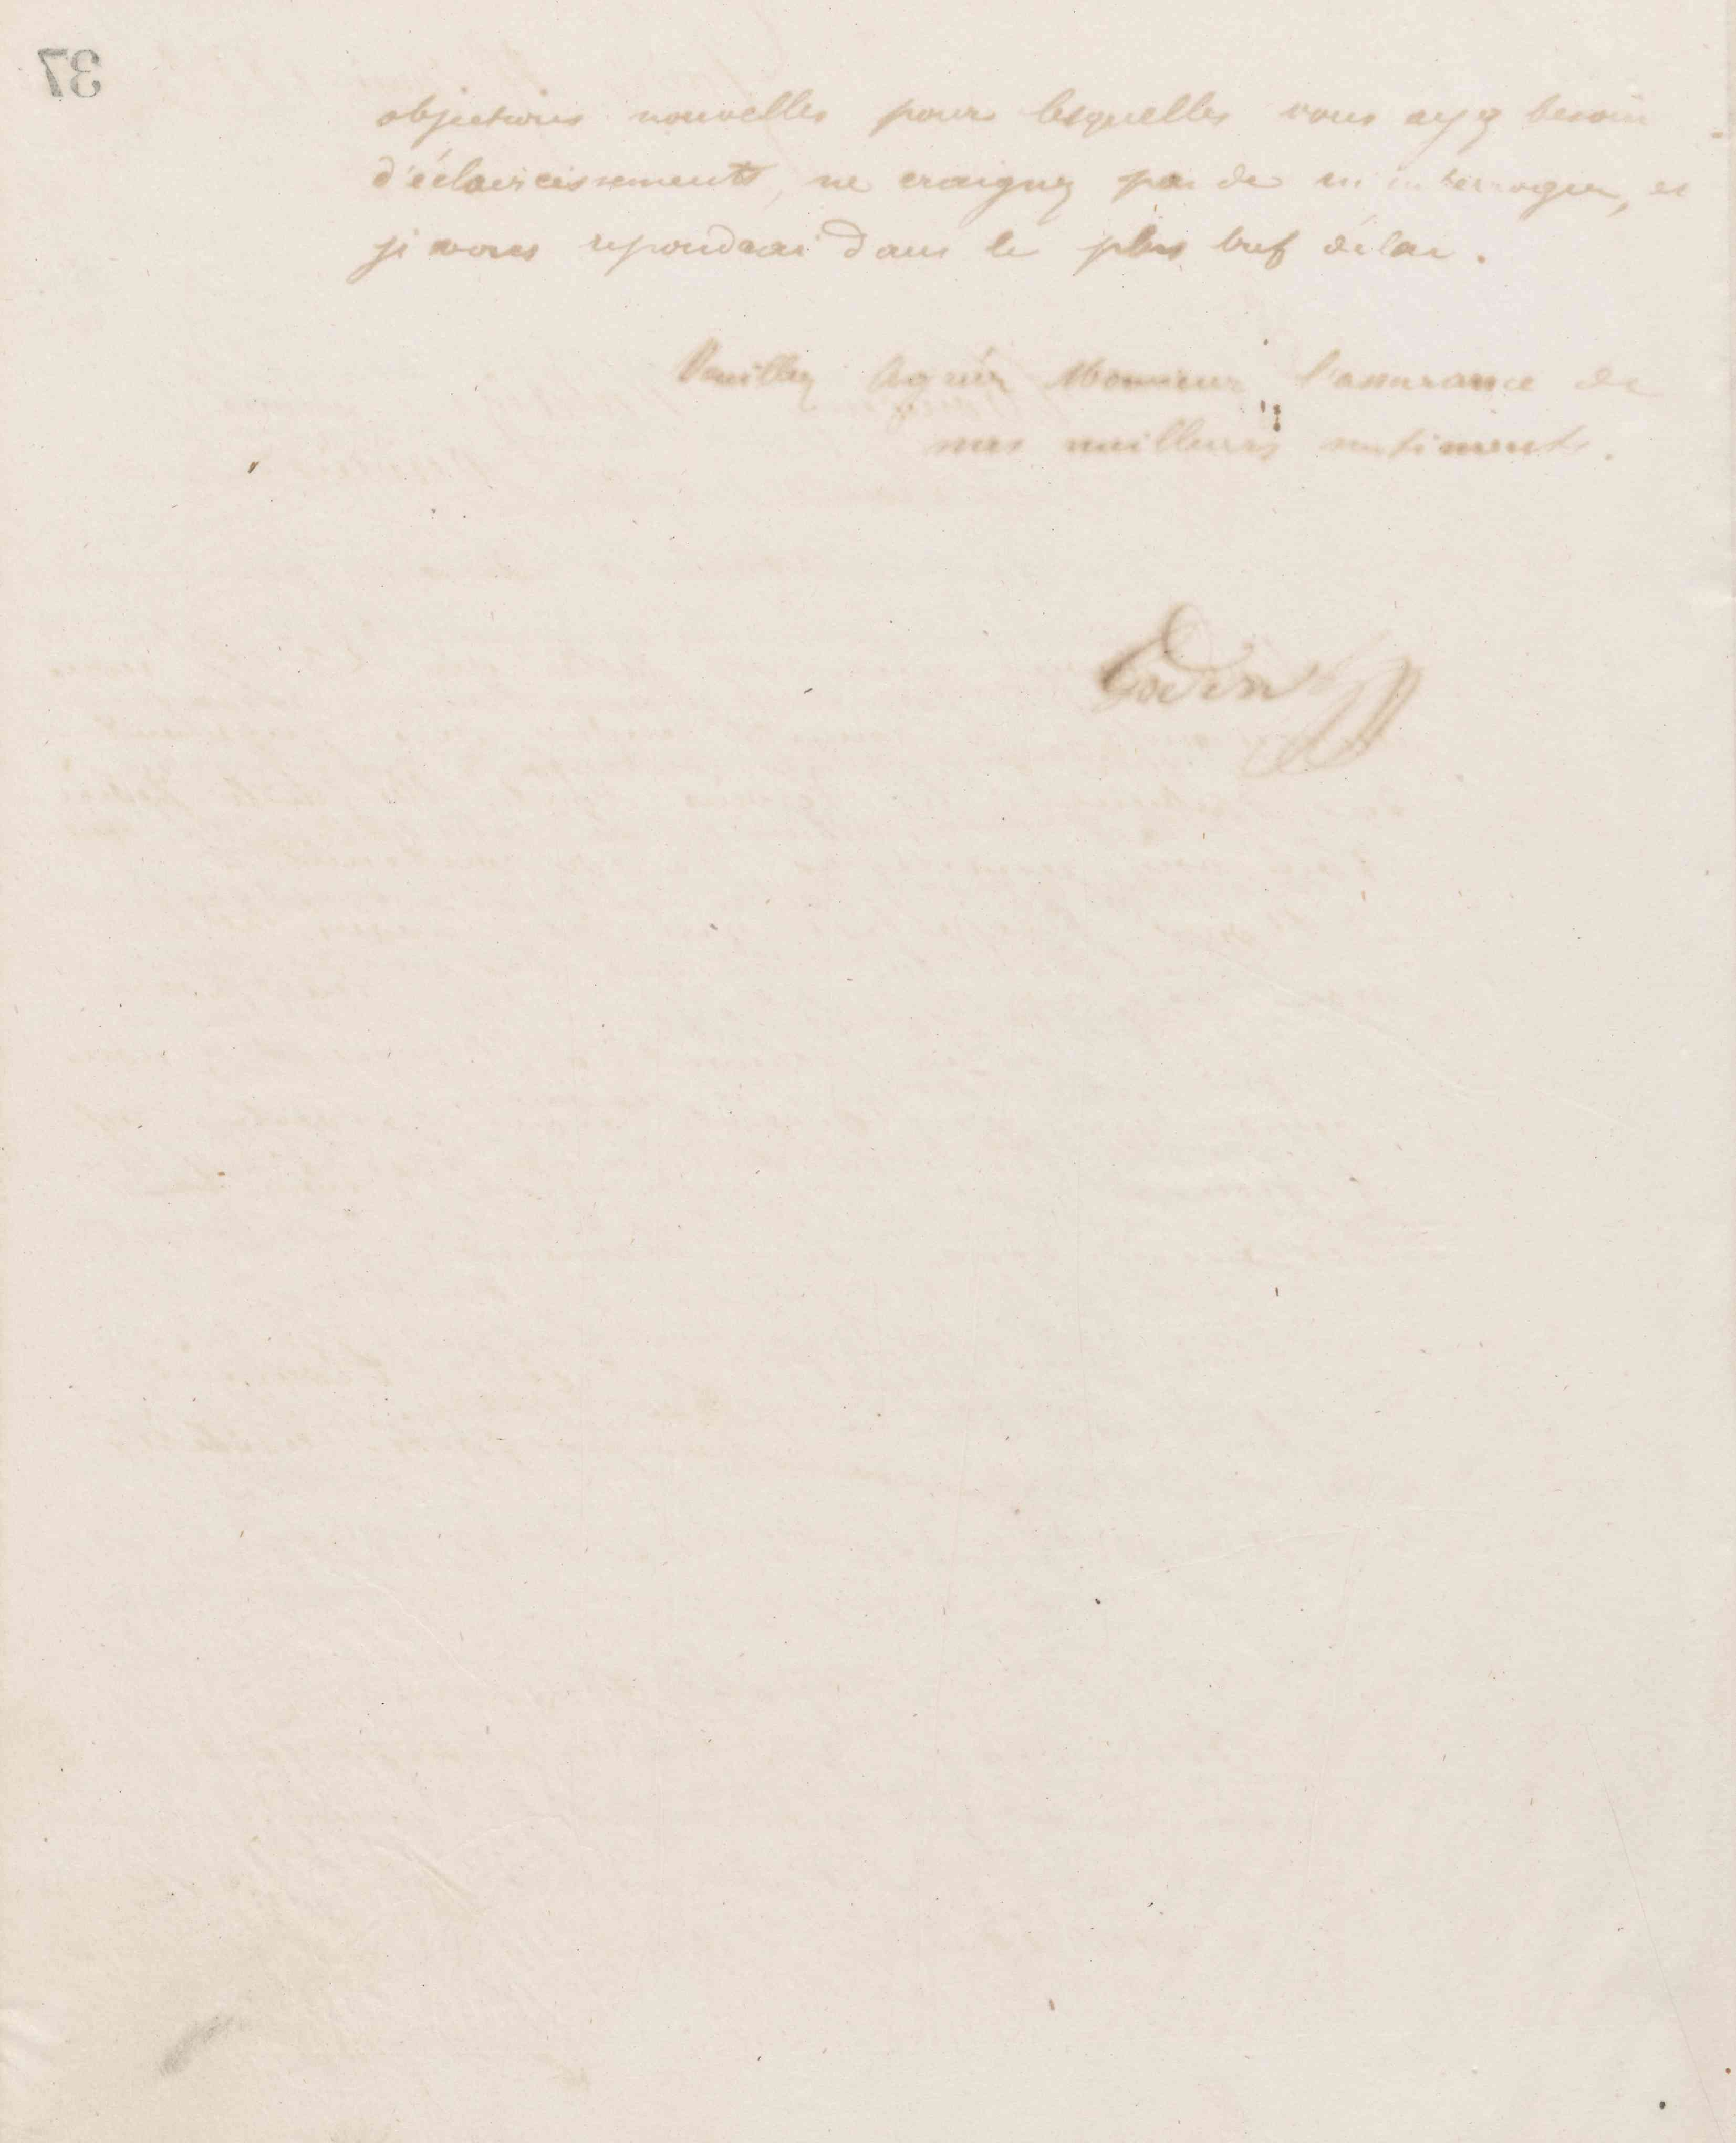 37
objections nouvelles pour lesquelles vous ayez besoin
d'éclaircissements, ne craignez pas de m'interroger, et
je vous repondrai dans le plus bref délai.
Veuillez agréer Monsieur l'assurance de
mes meilleurs sentiments.
Godin